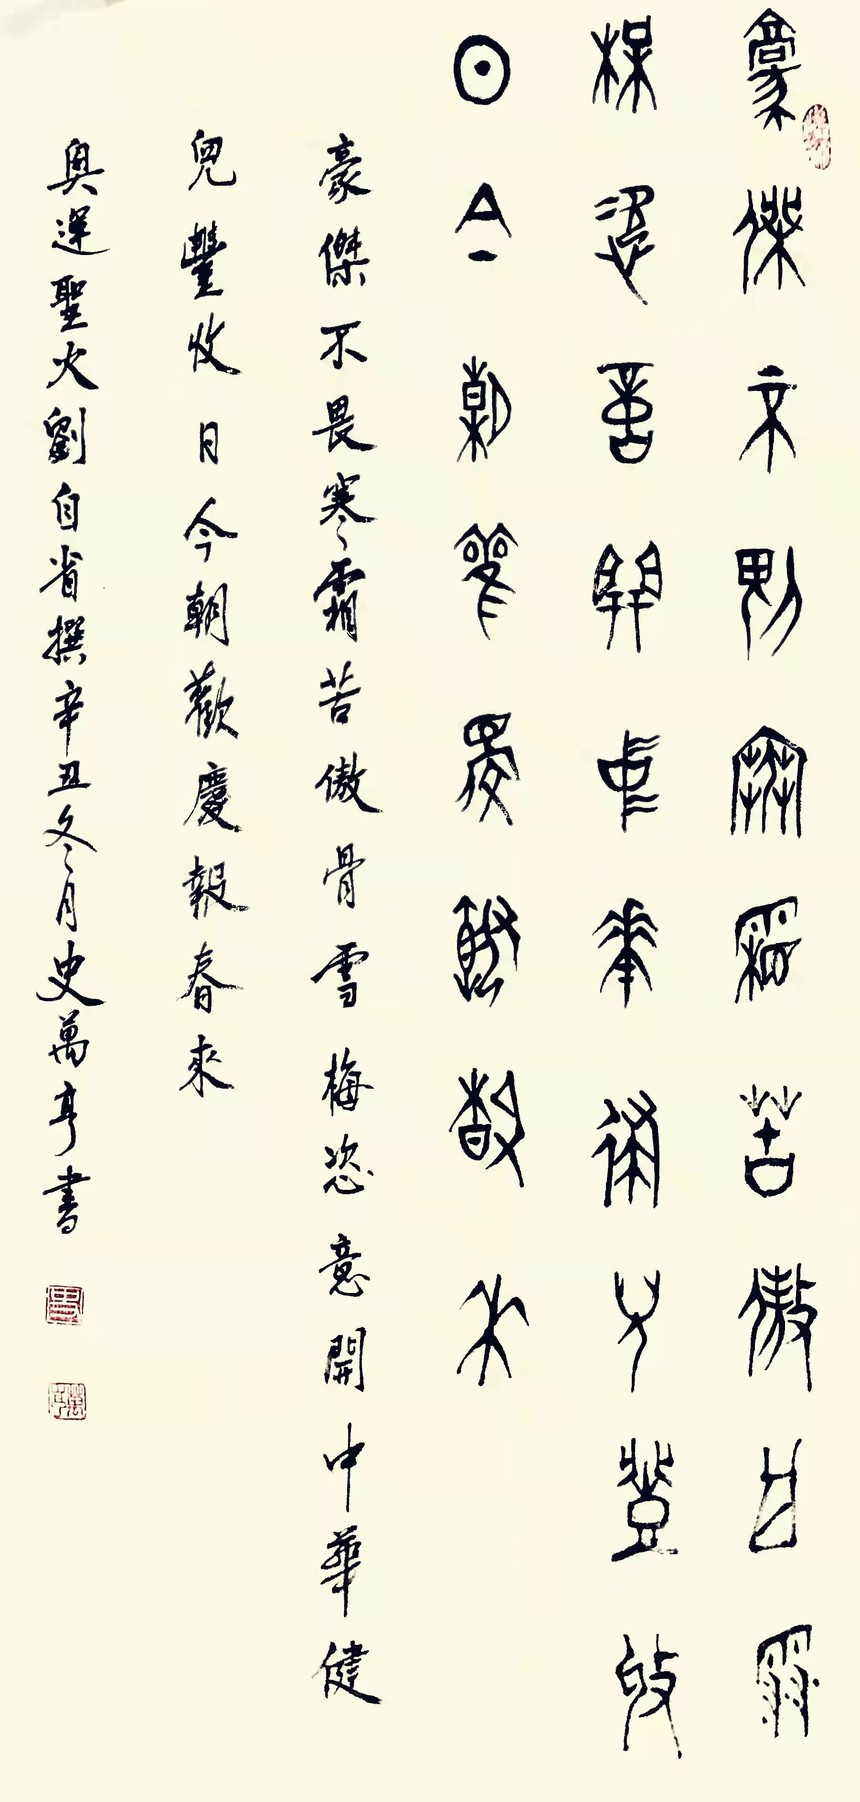 豪傑不畏寒霜苦傲骨雪
梅恣意開中華健兒豐收
日今朝歡慶報春來
豪傑不畏寒霜苦傲骨雪梅恣意開中華健
兒豐收日今朝歡慶報春來
奥運聖火劉自省撰辛丑冬月史萬亨書